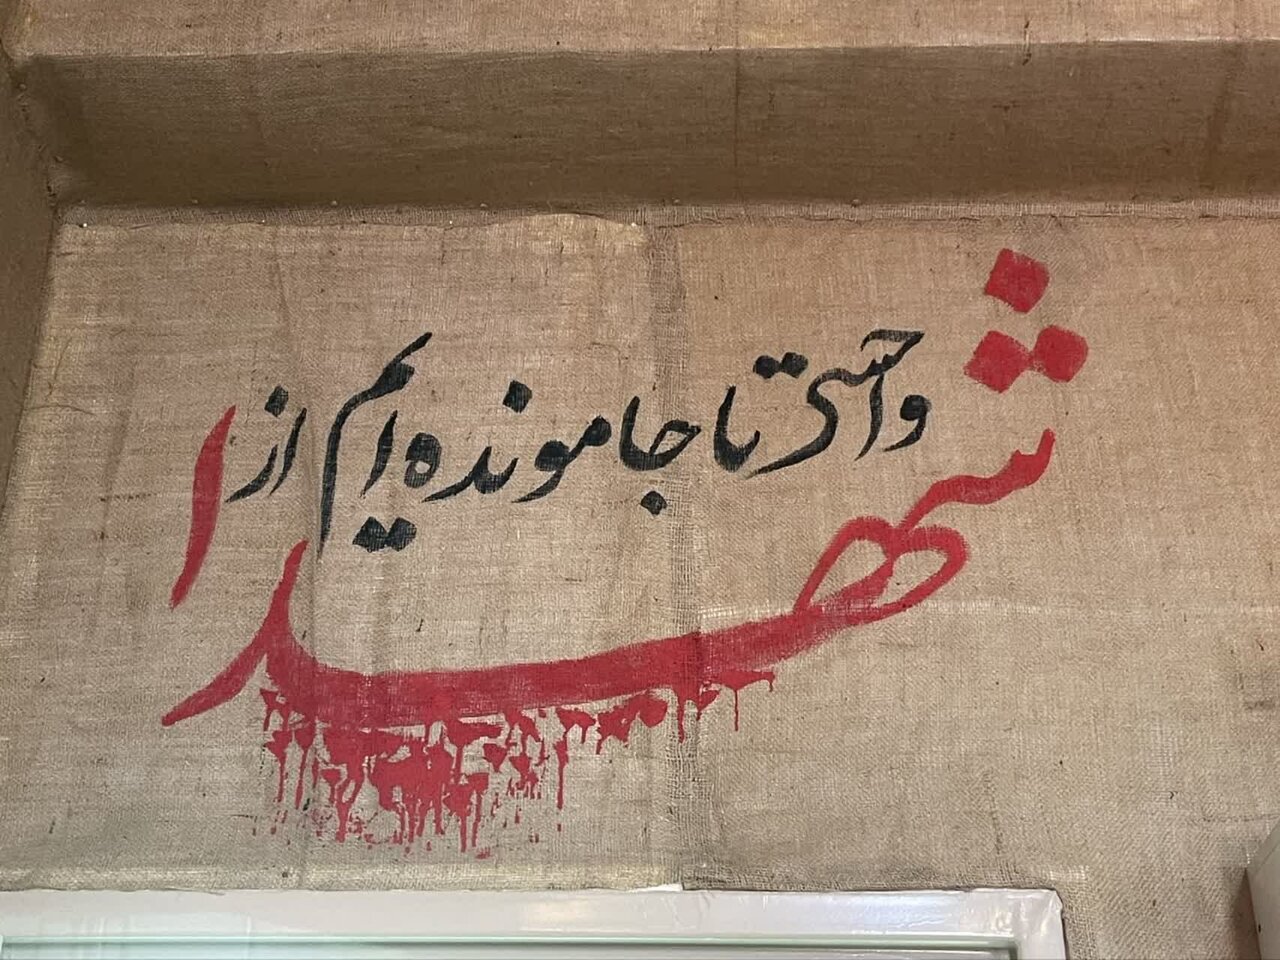 واحسرتا جامونده ایم از
شهدا